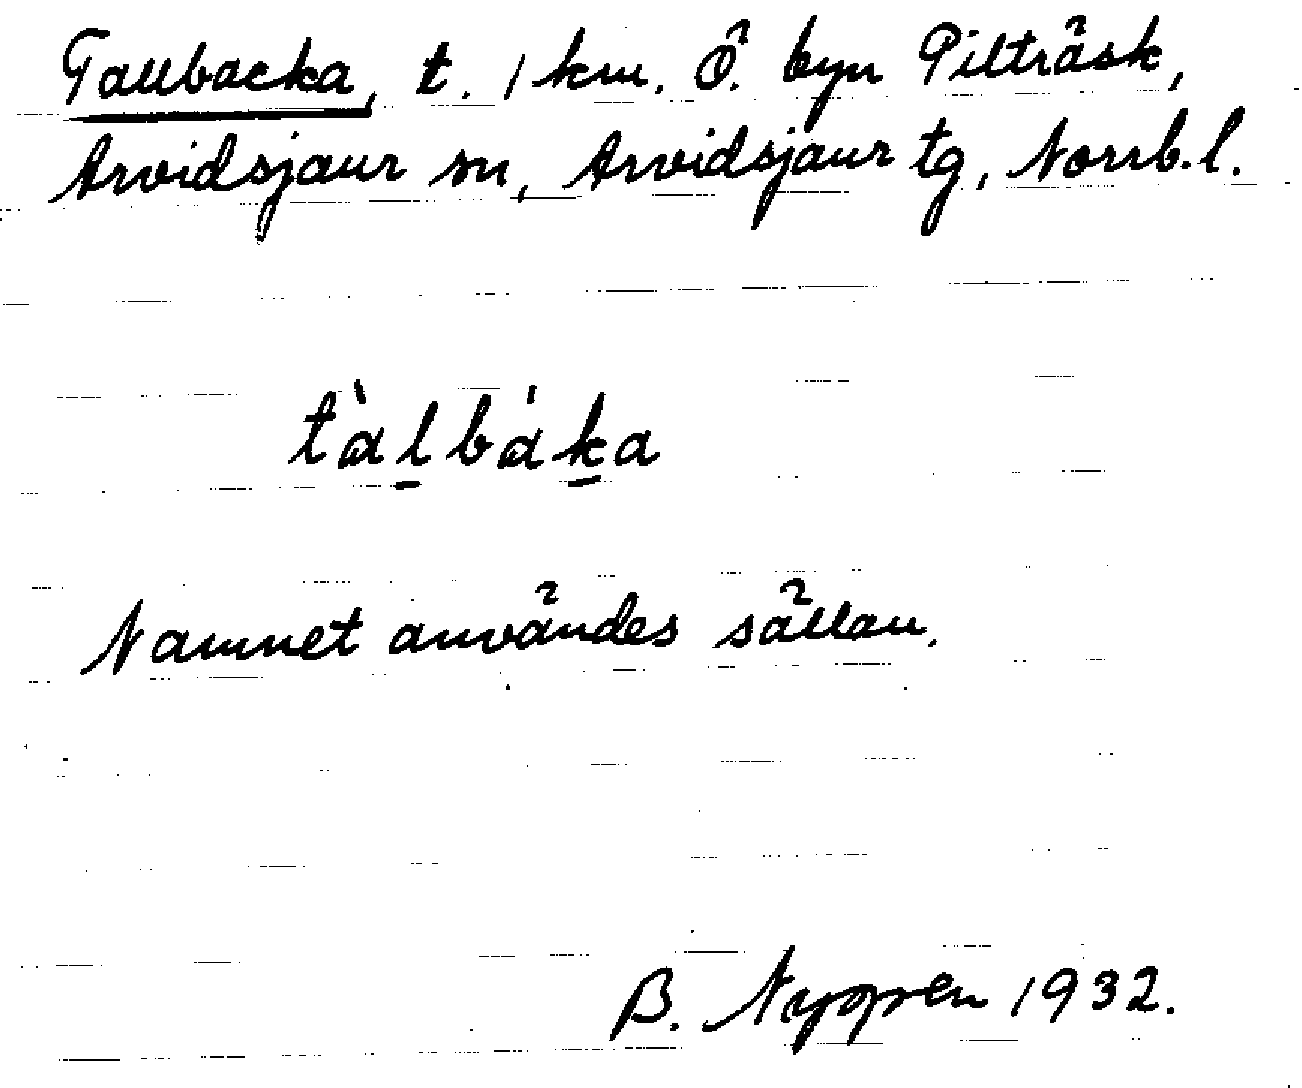 Tallbacka, t. 1 km. Ö. byn Pilträsk,
Arvidsjaur sn, Arvidsjaur tg, Norrb.l.
tàlbáka
Namnet användes sällan.
B. Nygren 1932.